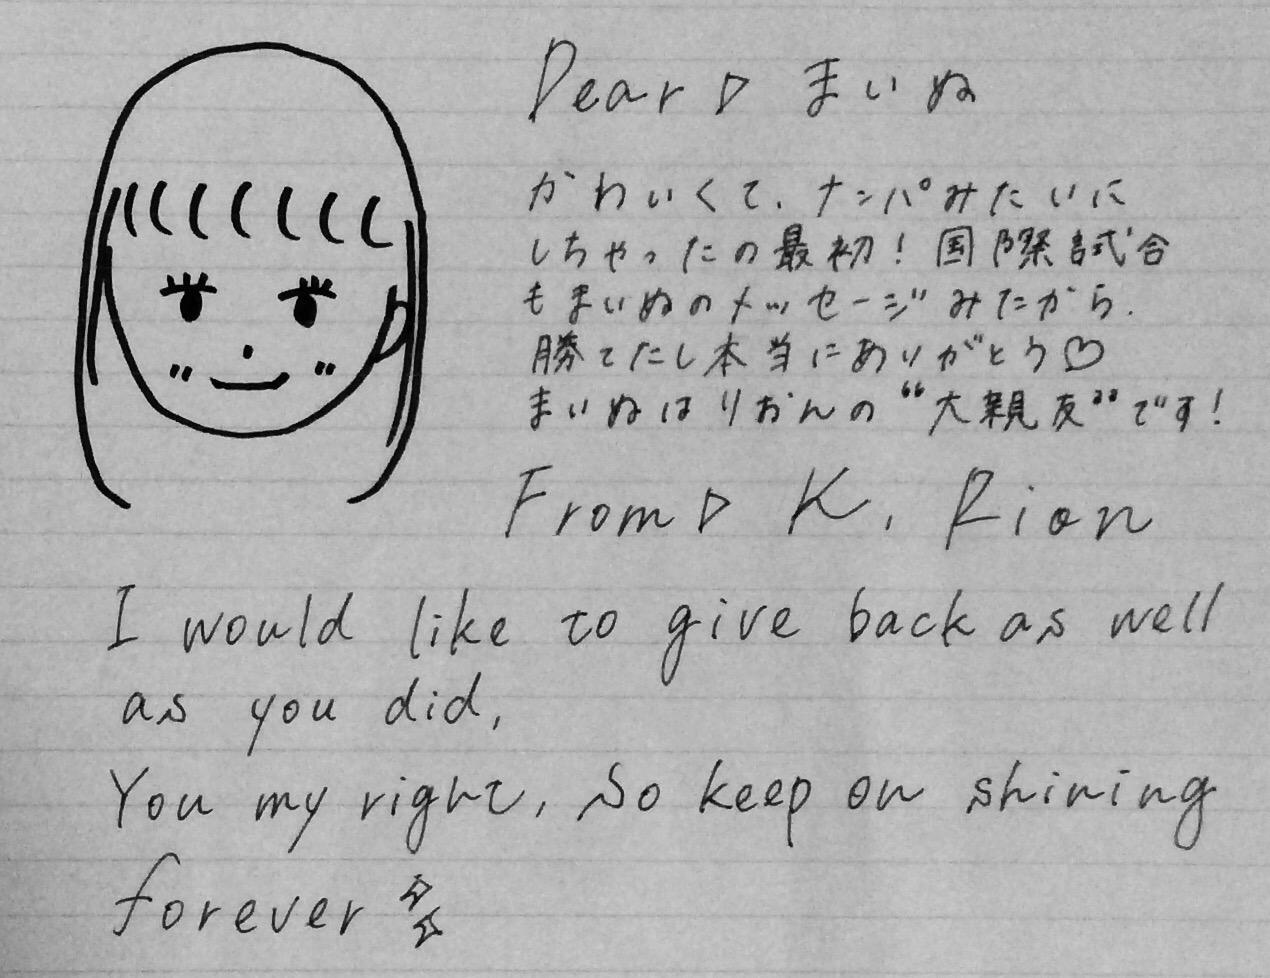 Dear▷ まいぬ
かわいくて、ナンパみたいに
しちゃったの最初！国際試合
もまいぬのメッセージみたから、
勝てたし本当にありがとう♡
まいぬはりおんの“大親友”です！
From▷ K, Rion
I would like to give back as well
as you did,
You my right, So keep on shining
forever